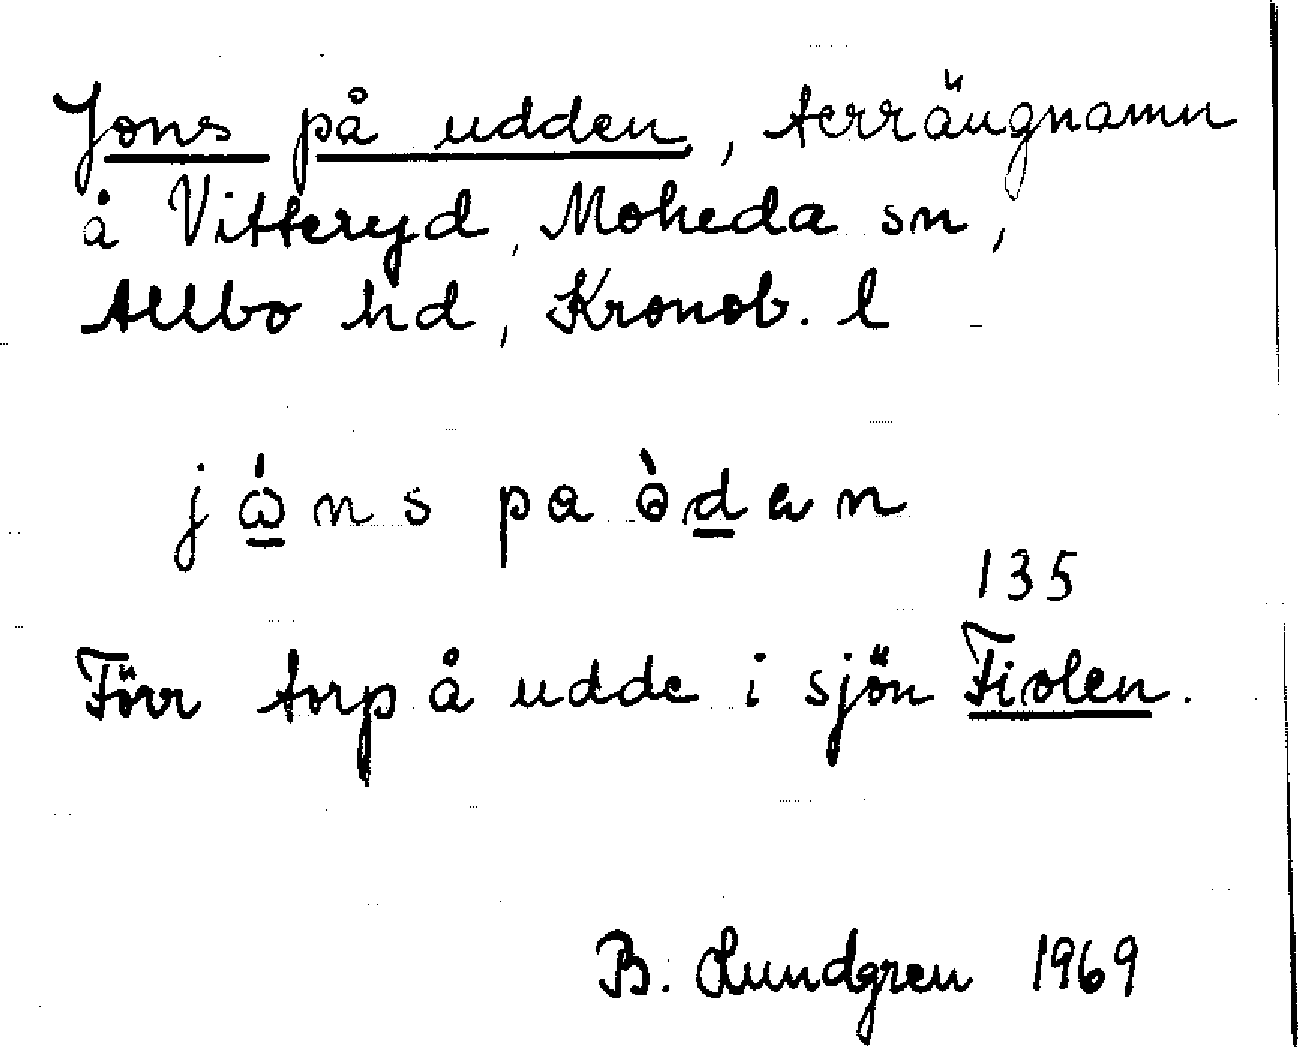 Jons på udden, terrängnamn
å Vitteryd, Moheda sn,
Allbo hd, Kronob. l
135
Förr torp å udde i sjön Fiolen.
B. Lundgren 1969